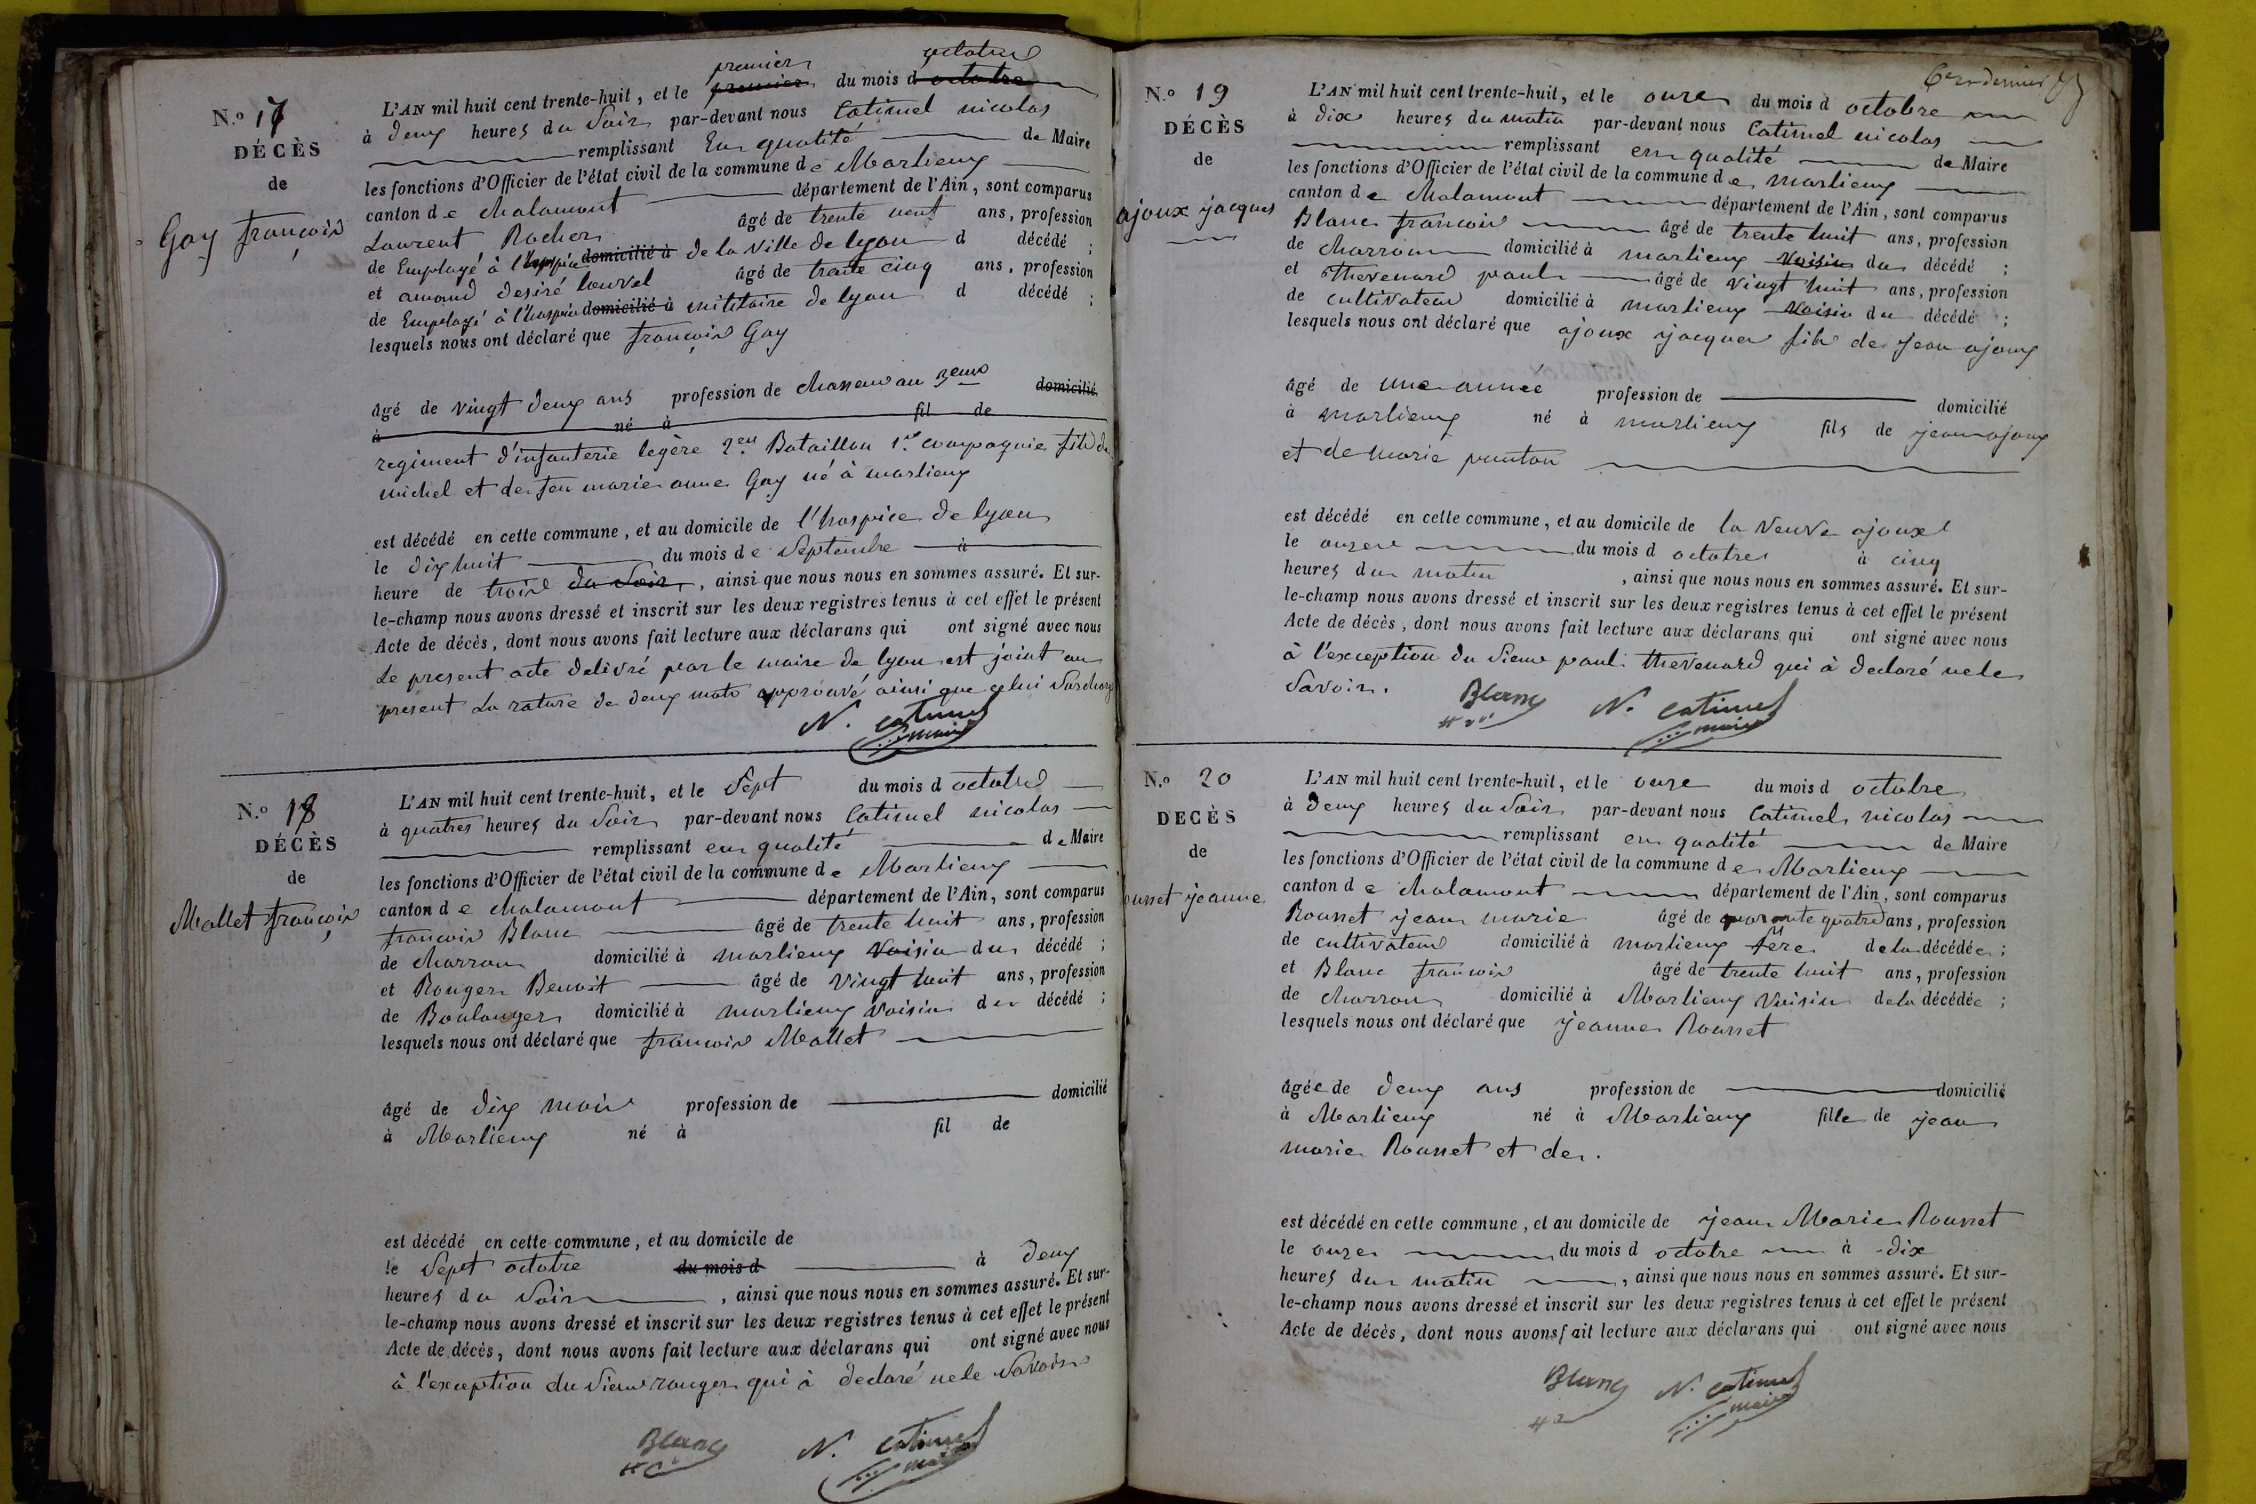 N.º 17
DÉCÈS
de
Gay françois
premier octobre
L'AN mil huit cent trente-huit, et le premier du mois d octobre
à deux heures du Soir par-devant nous Catimel nicolas
remplissant En qualité de Maire
les fonctions d'Officier de l'état civil de la commune de Marlieux
canton de chalamont département de l'Ain, sont comparus
Laurent Rocher âgé de trente neuf ans, profession
de Employé à l'hospice domicilié à de la Ville de lyon d décédé ;
et amand desiré louvel âgé de trente cinq ans, profession
de Employé à l'hospice domicilié à militaire de lyon d décédé ;
lesquels nous ont déclaré que françois Gay
âgé de vingt deux ans profession de chasseur au domicilié
à né à fil de
regiment d'infanterie legère 2eme Bataillon 1ere compagnie fils de
michel et de feu marie anne Gay né à marlieux
est décédé en cette commune, et au domicile de l'hospice de lyon
le dix huit du mois de Septembre à
heure de trois du Soir, ainsi que nous nous en sommes assuré. Et sur-
le-champ nous avons dressé et inscrit sur les deux registres tenus à cet effet le présent
Acte de décès, dont nous avons fait lecture aux déclarans qui ont signé avec nous
Le present acte delivré par le maire de lyon est joint au
present La rature de deux mots approuvé ainsi que celui Surchargé
N. Catimel
maire
N.º 18
DÉCÈS
de
Mallet françois
L'AN mil huit cent trente-huit, et le Sept du mois d octobre
à quatres heures du Soir par-devant nous Catimel nicolas
remplissant en qualité de Maire
les fonctions d'Officier de l'état civil de la commune de Marlieux
canton de chalamont département de l'Ain, sont comparus
françois Blanc âgé de trente huit ans, profession
de charron domicilié à marlieux Voisin du décédé ;
et Rouger Benoit âgé de Vingt huit ans, profession
de Boulanger domicilié à marlieux Voisin du décédé ;
lesquels nous ont déclaré que françois Mallet
âgé de dix mois profession de domicilié
à Marlieux né à fil de
est décédé en cette commune, et au domicile de
le Sept octobre du mois d à deux
heures du Soir, ainsi que nous nous en sommes assuré. Et sur-
le-champ nous avons dressé et inscrit sur les deux registres tenus à cet effet le présent
Acte de décès, dont nous avons fait lecture aux déclarans qui ont signé avec nous
à l'exception du Sieur rouger qui à declaré ne le Savoir
Blanc N. Catimel
maire
N.º 19
DÉCÈS
de
ajoux jacques
L'AN mil huit cent trente-huit, et le onze du mois d octobre
à dix heures du matin par-devant nous Catimel nicolas
remplissant en qualité de Maire
les fonctions d'Officier de l'état civil de la commune de marlieux
canton de chalamont département de l'Ain, sont comparus
Blanc francois âgé de trente huit ans, profession
de charron domicilié à marlieux Voisin du décédé ;
et thevenard paul âgé de vingt huit ans, profession
de cultivateur domicilié à marlieux Voisin du décédé ;
lesquels nous ont déclaré que ajoux jacques fils de jean ajoux
âgé de une année profession de domicilié
à marlieux né à marlieux fils de jean ajoux
et de marie
est décédé en cette commune, et au domicile de la Veuve ajoux
le onze du mois d octobre à cinq
heures du matin, ainsi que nous nous en sommes assuré. Et sur-
le-champ nous avons dressé et inscrit sur les deux registres tenus à cet effet le présent
Acte de décès, dont nous avons fait lecture aux déclarans qui ont signé avec nous
à l'exception du Sieur paul thevenard qui à declaré ne le
Savoir.
Blanc N. Catimel
maire
N.º 20
DÉCÈS
de
ousset jeanne
L'AN mil huit cent trente-huit, et le onze du mois d octobre
à deux heures du Soir par-devant nous Catimel nicolas
remplissant en qualité de Maire
les fonctions d'Officier de l'état civil de la commune de Marlieux
canton de chalamont département de l'Ain, sont comparus
Rousset jean marie âgé de quarante quatre ans, profession
de cultivateur domicilié à marlieux père de la décédée ;
et Blanc francois âgé de trente huit ans, profession
de charron domicilié à Marlieux Voisin de la décédée ;
lesquels nous ont déclaré que jeanne Rousset
âgée de deux ans profession de domicilié
à Marlieux né à Marlieux fille de jean
marie Rousset et de.
est décédé en cette commune, et au domicile de jean Marie Rousset
le onze du mois d octobre à dix
heures du matin, ainsi que nous nous en sommes assuré. Et sur-
le-champ nous avons dressé et inscrit sur les deux registres tenus à cet effet le présent
Acte de décès, dont nous avons fait lecture aux déclarans qui ont signé avec nous
Blanc N. Catimel
maire